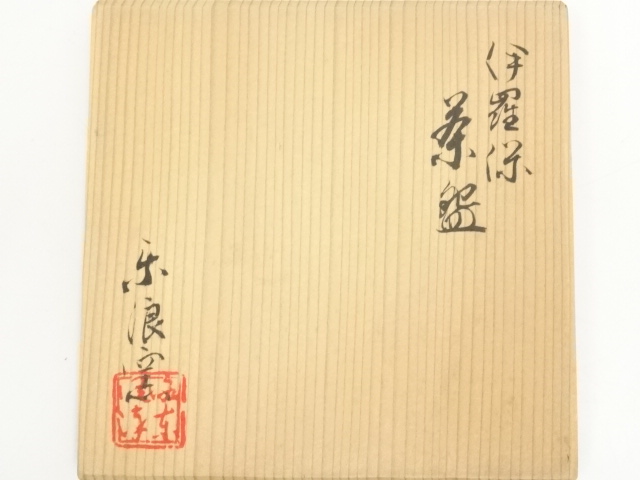 伊羅保
茶盌
楽浪窯